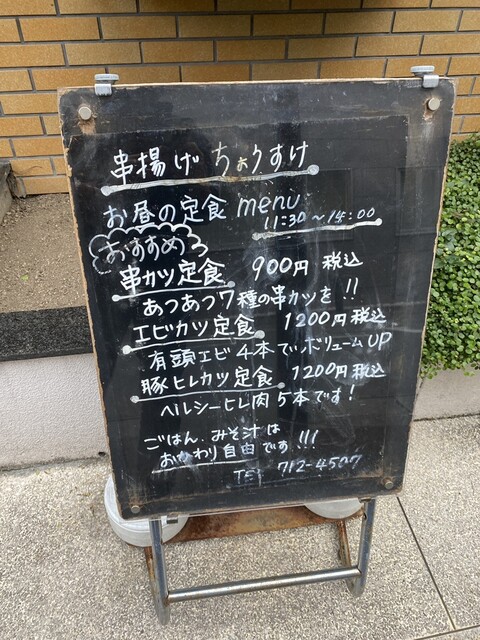 串揚げちょうすけ
お昼の定食 menu
11:30〜14:00
おすすめ
串カツ定食 900円 税込
あつあつ7種の串カツを!!
エビカツ定食 1200円 税込
有頭エビ4本でボリュームUP
豚ヒレカツ定食 1200円 税込
ヘルシーヒレ肉5本です!
ごはん、みそ汁は
おかわり自由です!!!
TEL 712-4507